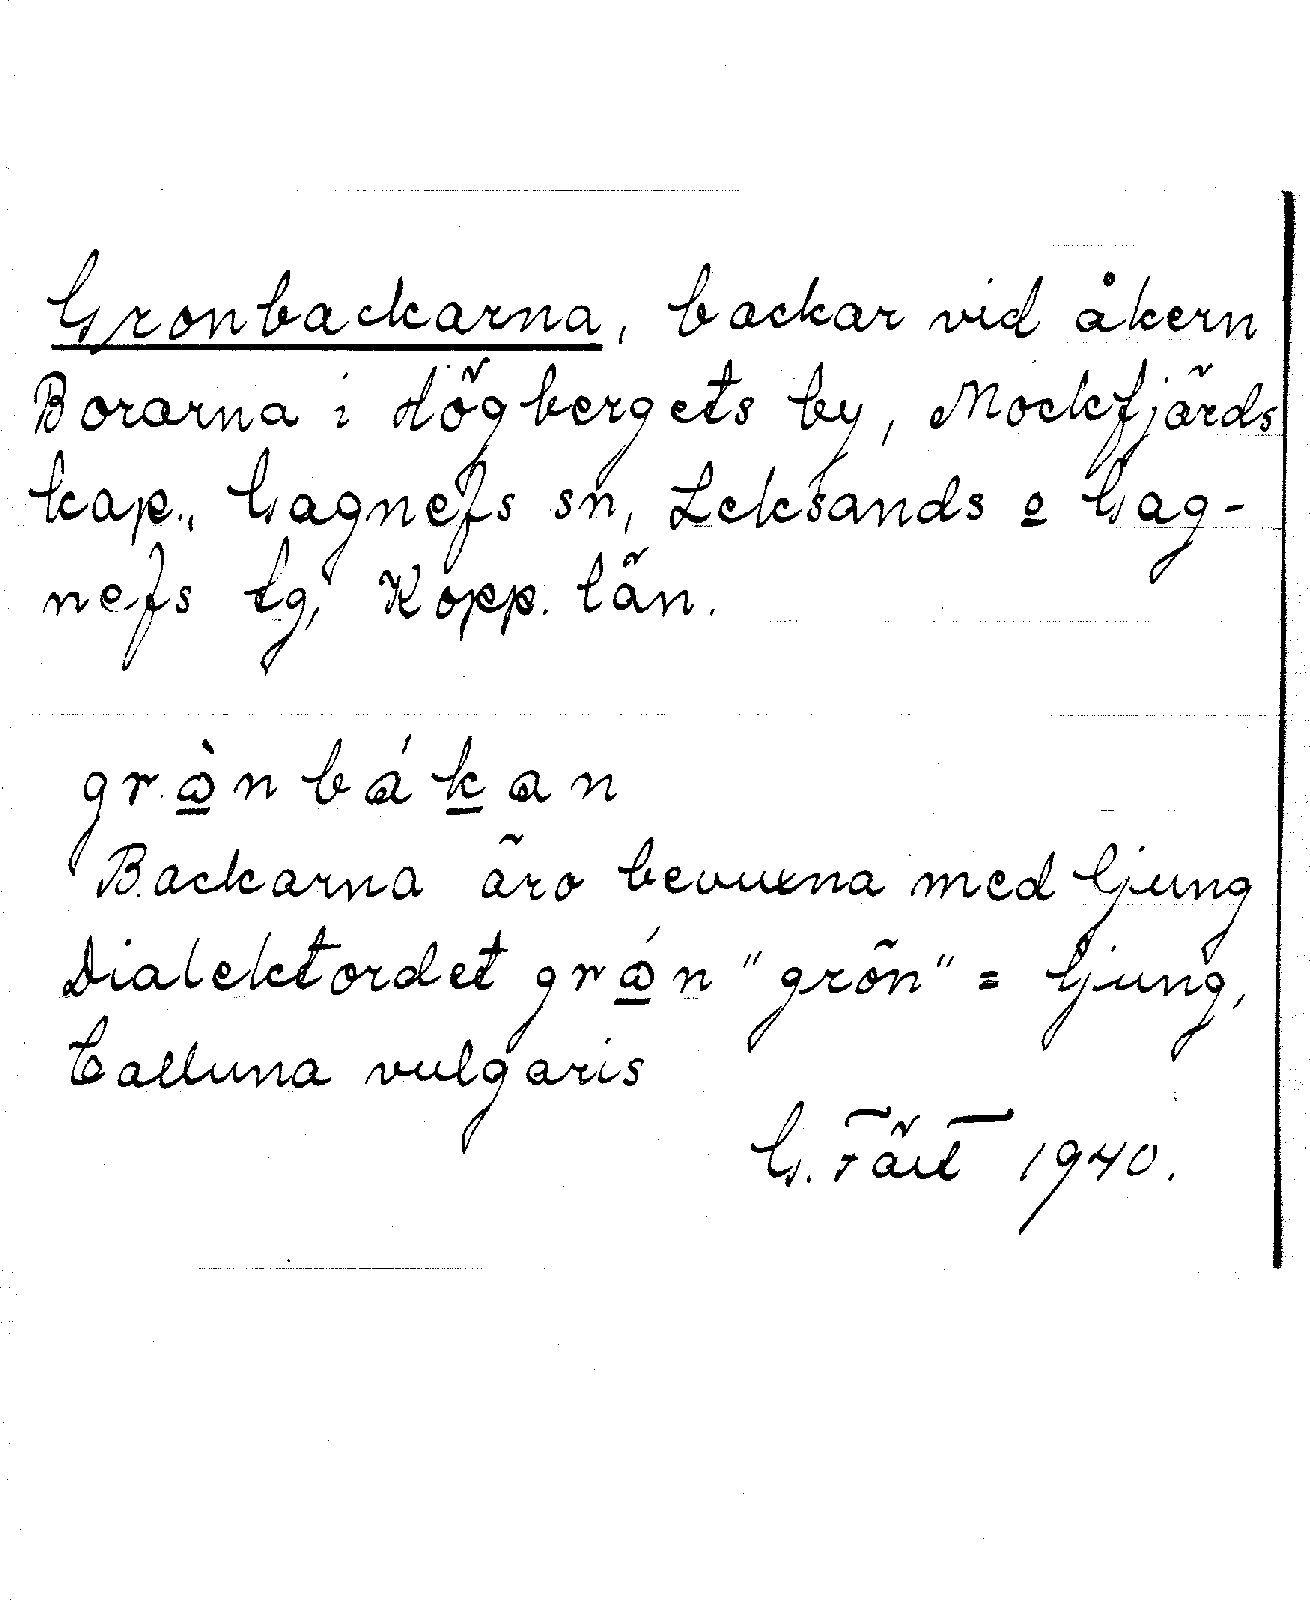 Gronbackarna, backar vid åkern
Borarna i Högbergets by, Mockfjärds
kap., Gagnefs sn, Leksands o Gag-
nefs tg, Kopp. län.
grὼ̲nbák̲an
Backarna äro bevuxna med ljung
Dialektordet grώ̲n "grön" = ljung,
Calluna vulgaris
G. 1940.